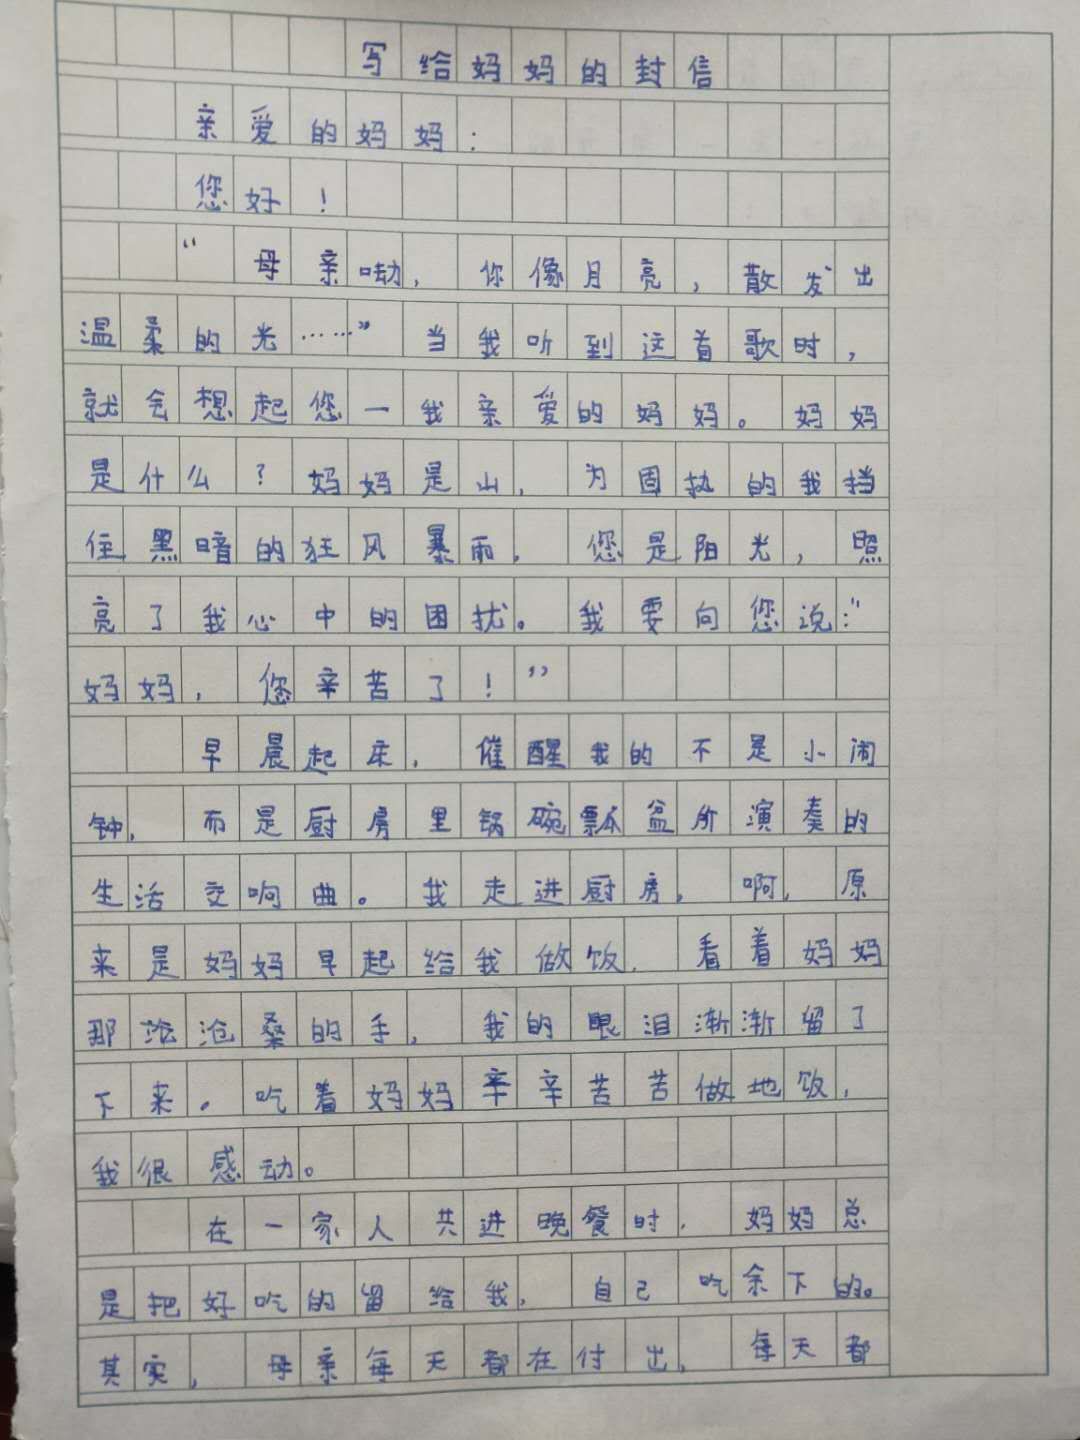 写给妈妈的封信
亲爱的妈妈：
您好！
“母亲呦，你像月亮，散发出
温柔的光……”当我听到这首歌时，
就会想起您一我亲爱的妈妈。妈妈
是什么？妈妈是山，为固执的我挡
住黑暗的狂风暴雨，您是阳光，照
亮了我心中的困扰。我要向您说：“
妈妈，您辛苦了！”
早晨起床，催醒我的不是小闹
钟，而是厨房里锅碗瓢盆所演奏的
生活交响曲。我走进厨房，啊，原
来是妈妈早起给我做饭，看着妈妈
那沧沧桑的手，我的眼泪渐渐留了
下来。吃着妈妈辛辛苦苦做地饭，
我很感动。
在一家人共进晚餐时，妈妈总
是把好吃的留给我，自己吃余下的。
其实，母亲每天都在付出，每天都